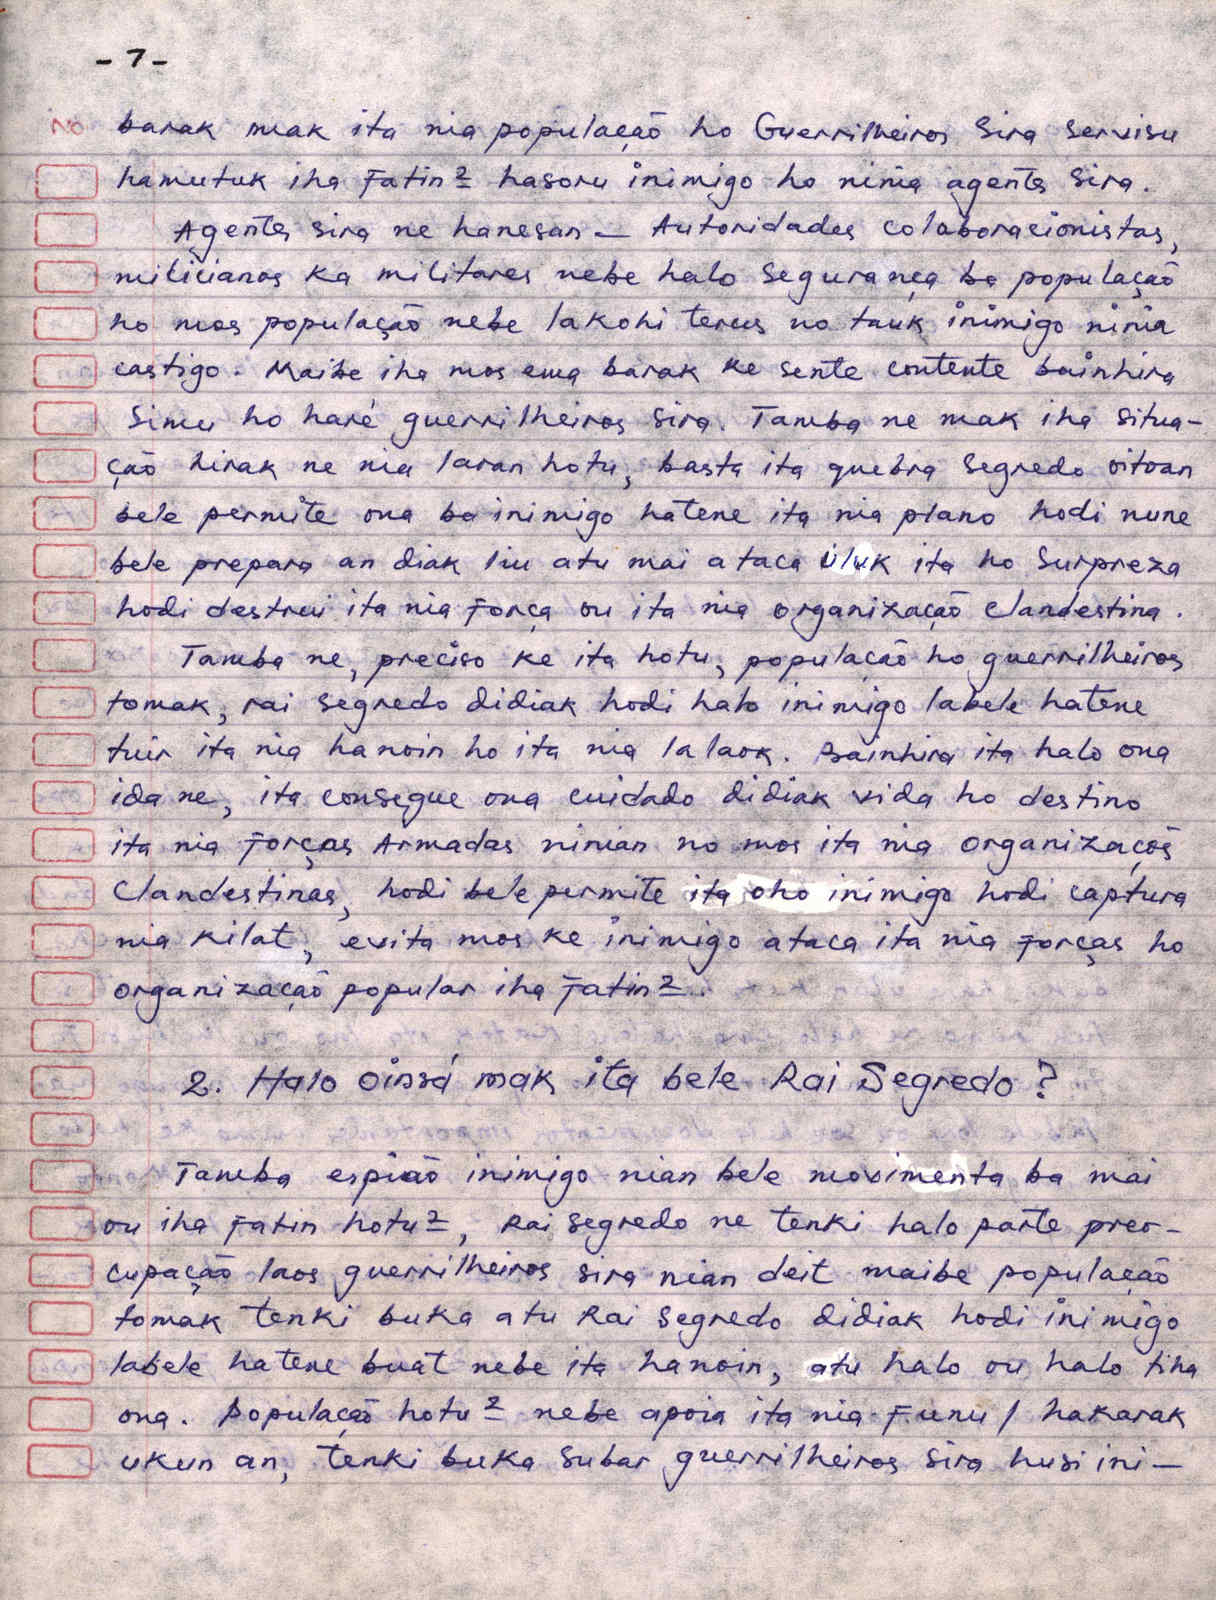 - 7 -
No
barak mak ita nia população ho Guerrilheiros sira servisu
hamutuk iha fatin 2 hasoru inimigo ho ninia agentes sira.
Agentes sira ne hanesan — Autoridades colaborasionistas,
milicianos ka militares nebe halo segurança ba população
ho mos população nebe lakohi terus no tauk inimigo ninia
castigo. Maibe iha mos ema barak ke sente contente bainhira
simu ho haré guerrilheiros sira. Tamba ne mak iha situa-
ção hirak ne nia laran hotu, basta ita quebra segredo oitoan
bele permite ona ba inimigo hatene ita nia plano hodi nune
bele prepara an diak liu atu mai ataca uluk ita ho surpreza
hodi destrui ita nia força ou ita nia organização clandestina.
Tamba ne, preciso ke ita hotu, população ho guerrilheiros
tomak, rai segredo didiak hodi halo inimigo labele hatene
tuir ita nia hanoin ho ita nia lalaok. Bainhira ita halo ona
ida ne, ita consegue ona cuidado didiak vida ho destino
ita nia Forças Armadas ninian no mos ita nia organizações
Clandestinas, hodi bele permite ita oho inimigo hodi captura
nia kilat, evita mos ke inimigo ataca ita nia forças ho
organização popular iha fatin 2.
2. Halo oinsá mak ita bele Rai Segredo?
Tamba espião inimigo nian bele movimenta ba mai
ou iha fatin hotu 2, Rai segredo ne tenki halo parte preo-
cupação laos guerrilheiros sira nian deit maibe população
tomak tenki buka atu Rai segredo didiak hodi inimigo
labele hatene buat nebe ita hanoin, atu halo ou halo tiha
ona. População hotu 2 nebe apoia ita nia Funu / hakarak
ukun an, tenki buka subar guerrilheiros sira husi ini-